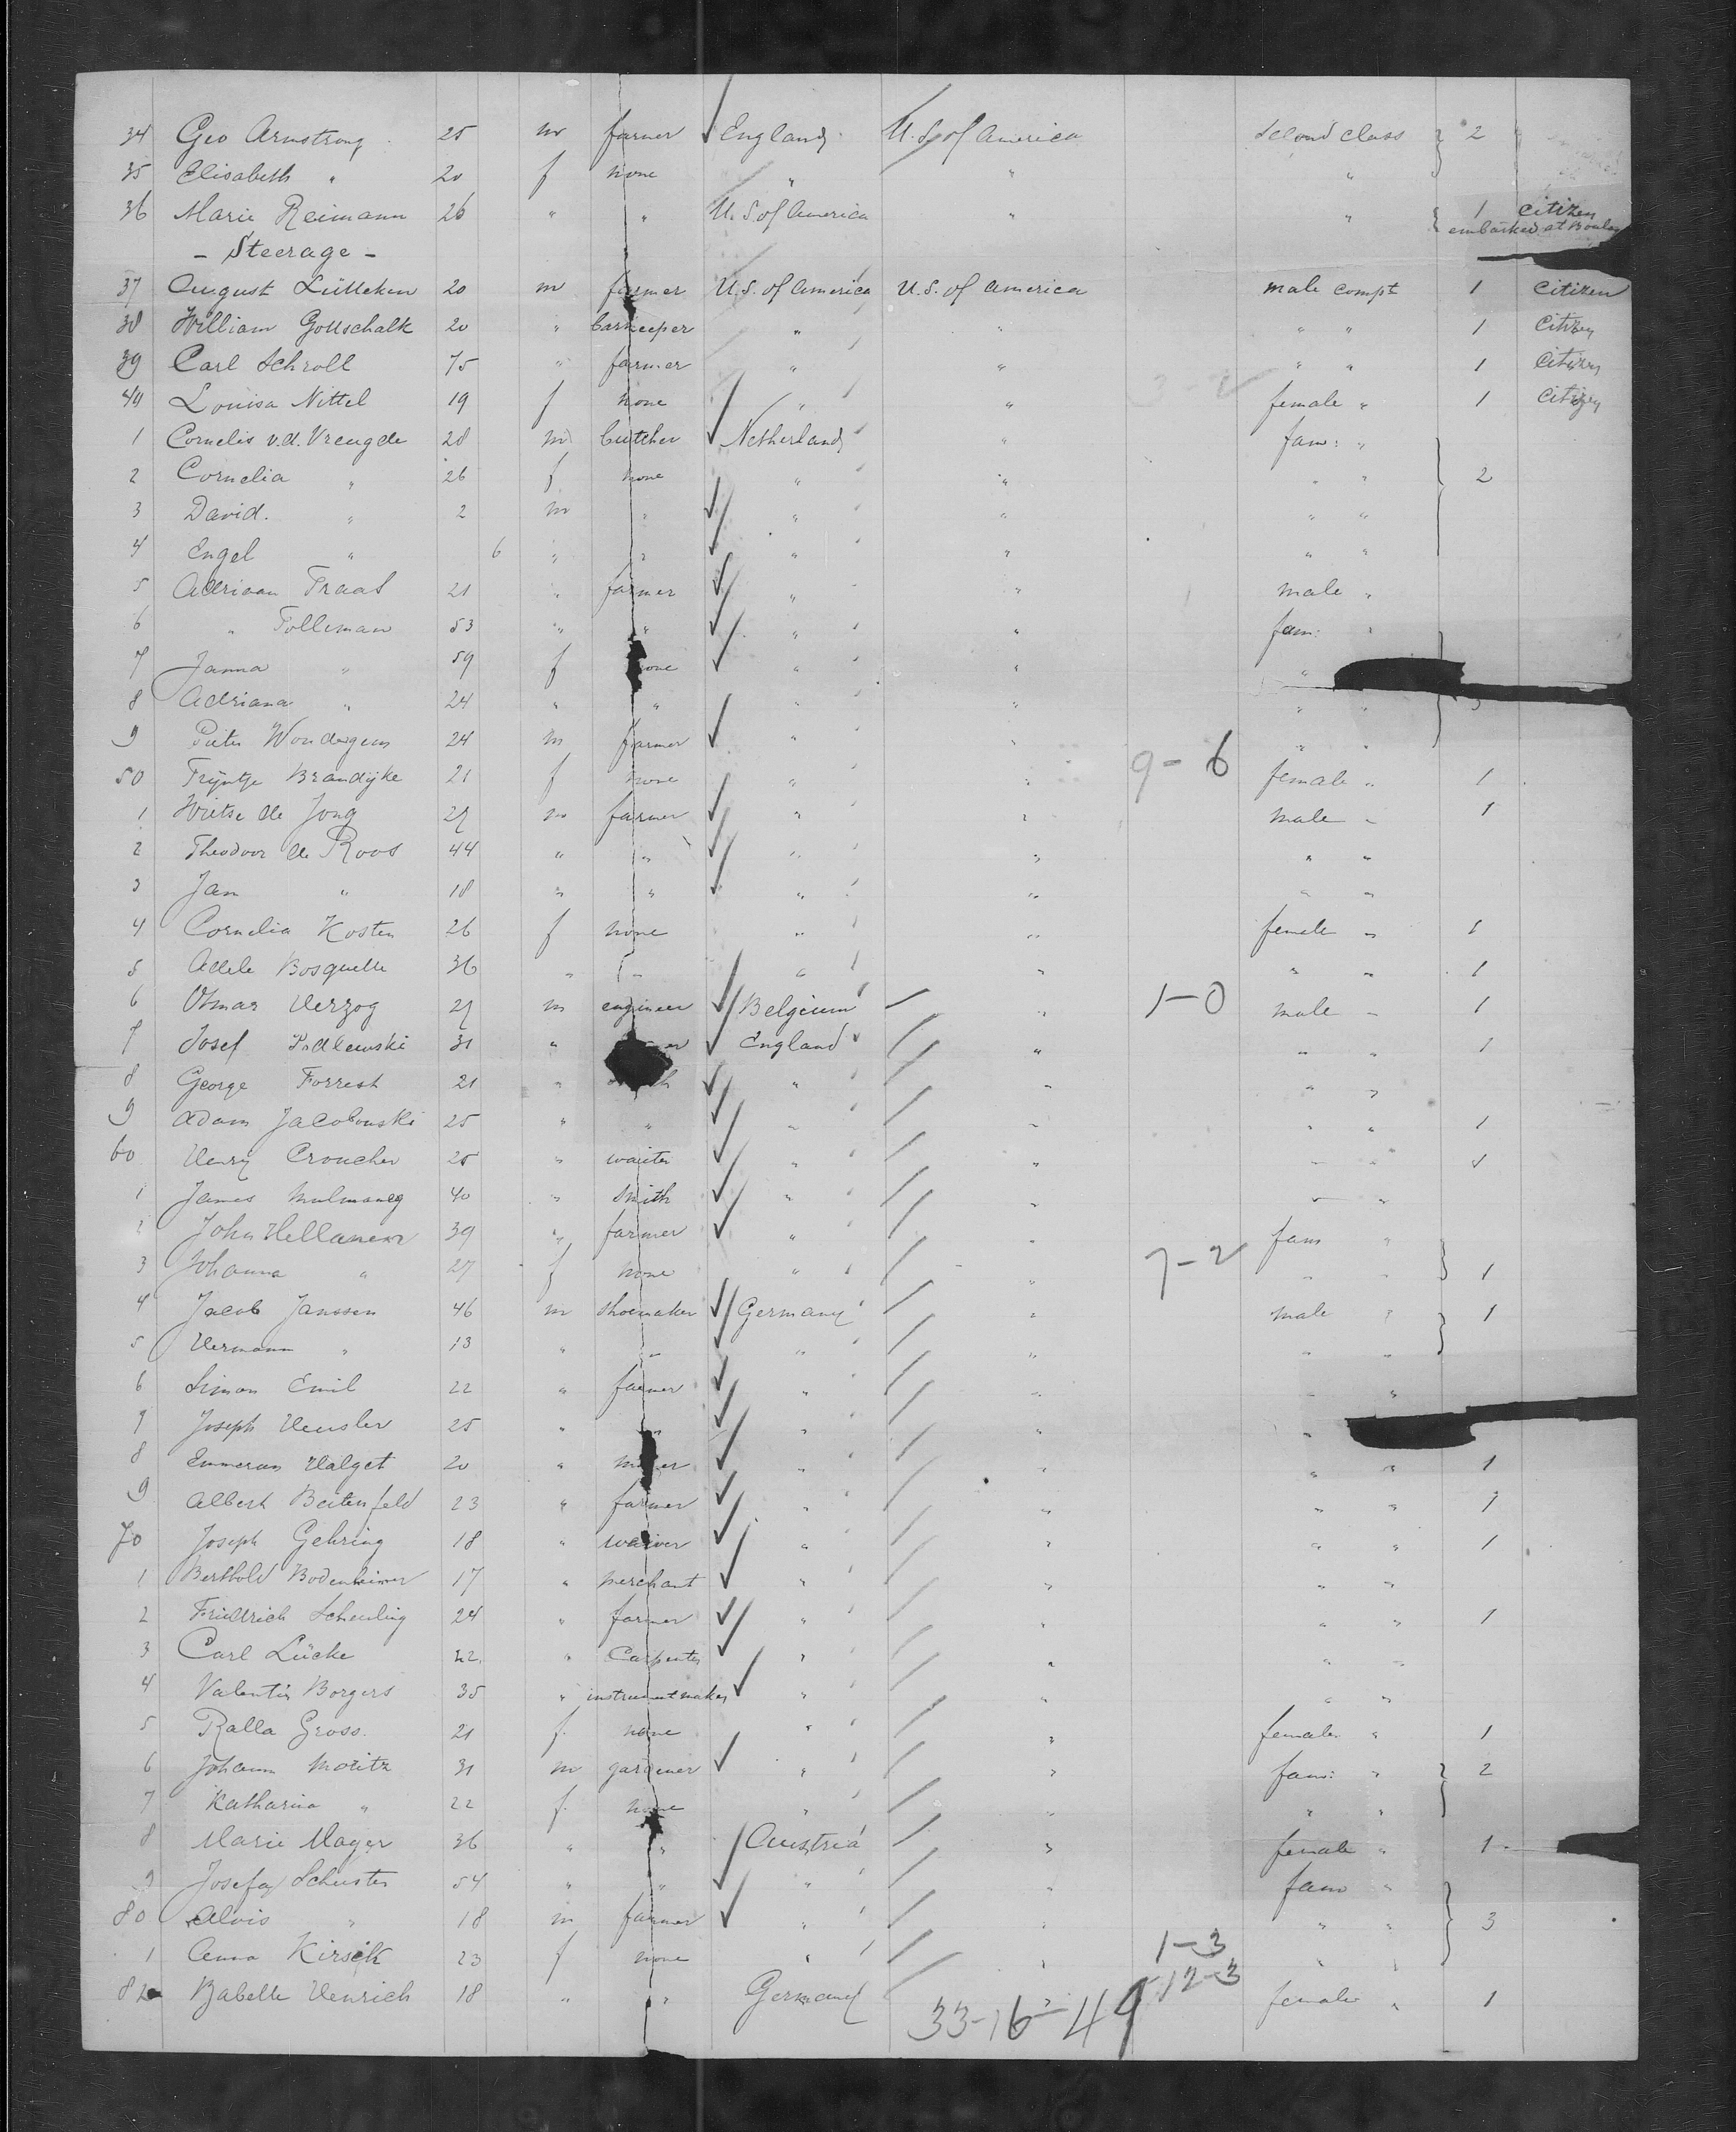 34 Geo Armstrong 25 m farmer England U.S. of America Second class 2
35 Elisabeth " 20 f none " " "
36 Marie Reimann 26 " " U.S of America " " 1 Citizen
embarked at
- Steerage -
37 August Lütteken 20 m farmer U.S. of America U.S. of America male compt 1 Citizen
38 William Gottschalk 20 " barkeeper " " " " 1 Citizen
39 Carl Schroll 75 " farmer " " " " 1 Citizen
40 Louisa Nittel 19 f none " " female " 1 Citizen
1 Cornelis v.d. Vreugde 28 m butcher Netherland " fam: "
2 Cornelia " 26 f none " " " " 2
3 David. " 2 m " " " " "
4 Engel " 6 " " " " " "
5 Adriaan Traas 21 " farmer " " male "
6 " Tolleman 53 " " " " fam: "
7 Janna " 59 f none " " "
8 Adriana " 24 " " " " " " 3
9 Pieter Wondergem 24 m farmer " " " "
9-6
50 Trijntje Brandijke 21 f none " " female " 1
1 Wietse de Jong 27 m farmer " " male " 1
2 Theodoor de Roos 44 " " " " " "
3 Jan " 18 " " " " " "
4 Cornelia Kosten 26 f none " " female " 1
5 Adele Bosquelle 36 " " " " " " 1
6 Otmar Herzog 27 m engineer Belgium " 1-0 male " 1
7 Josef 31 " England " " " 1
8 George Forrest 21 " " " " "
9 Adam Jacobouski 25 " " " " " " 1
60 Henry Croucher 25 " waiter " " " " 1
1 James Mulmaney 40 " Smith " " " "
2 John 39 " farmer " " fam "
3 Johanna " 27 f none " " 7-2 " " 1
4 Jacob Janssen 46 m shoemaker Germany " male " 1
5 Hermann " 13 " " " " " "
6 Simon Emil 22 " farmer " " " "
7 Joseph Hensler 25 " " " " "
8 Emmeran Halget 20 " " " " " 1
9 Albert Beitenfeld 23 " farmer " " " " 1
70 Joseph Gehring 18 " " " " " 1
1 Berthold Bodenheimer 17 " merchant " " " "
2 Friedrich Scheuling 24 " farmer " " " " 1
3 Carl Lücke 42 " Carpenter " " " "
4 Valentin Borgers 35 " instrumentmaker " " " "
5 Ralla Gross. 21 f. none " " female " 1
6 Johann Moritz 31 m gardener " " fam: " 2
7 Katharina " 22 f. none " " " "
8 Marie Mayer 36 " " Austria " female " 1
9 Josefa Schuster 54 " " " " fam "
80 Alois " 18 m farmer " " " " 3
1 Anna Kirsch 23 f none " " 1-3 " "
12-3
82 Babette Henrich 18 " " Germany " female " 1
33-16-49